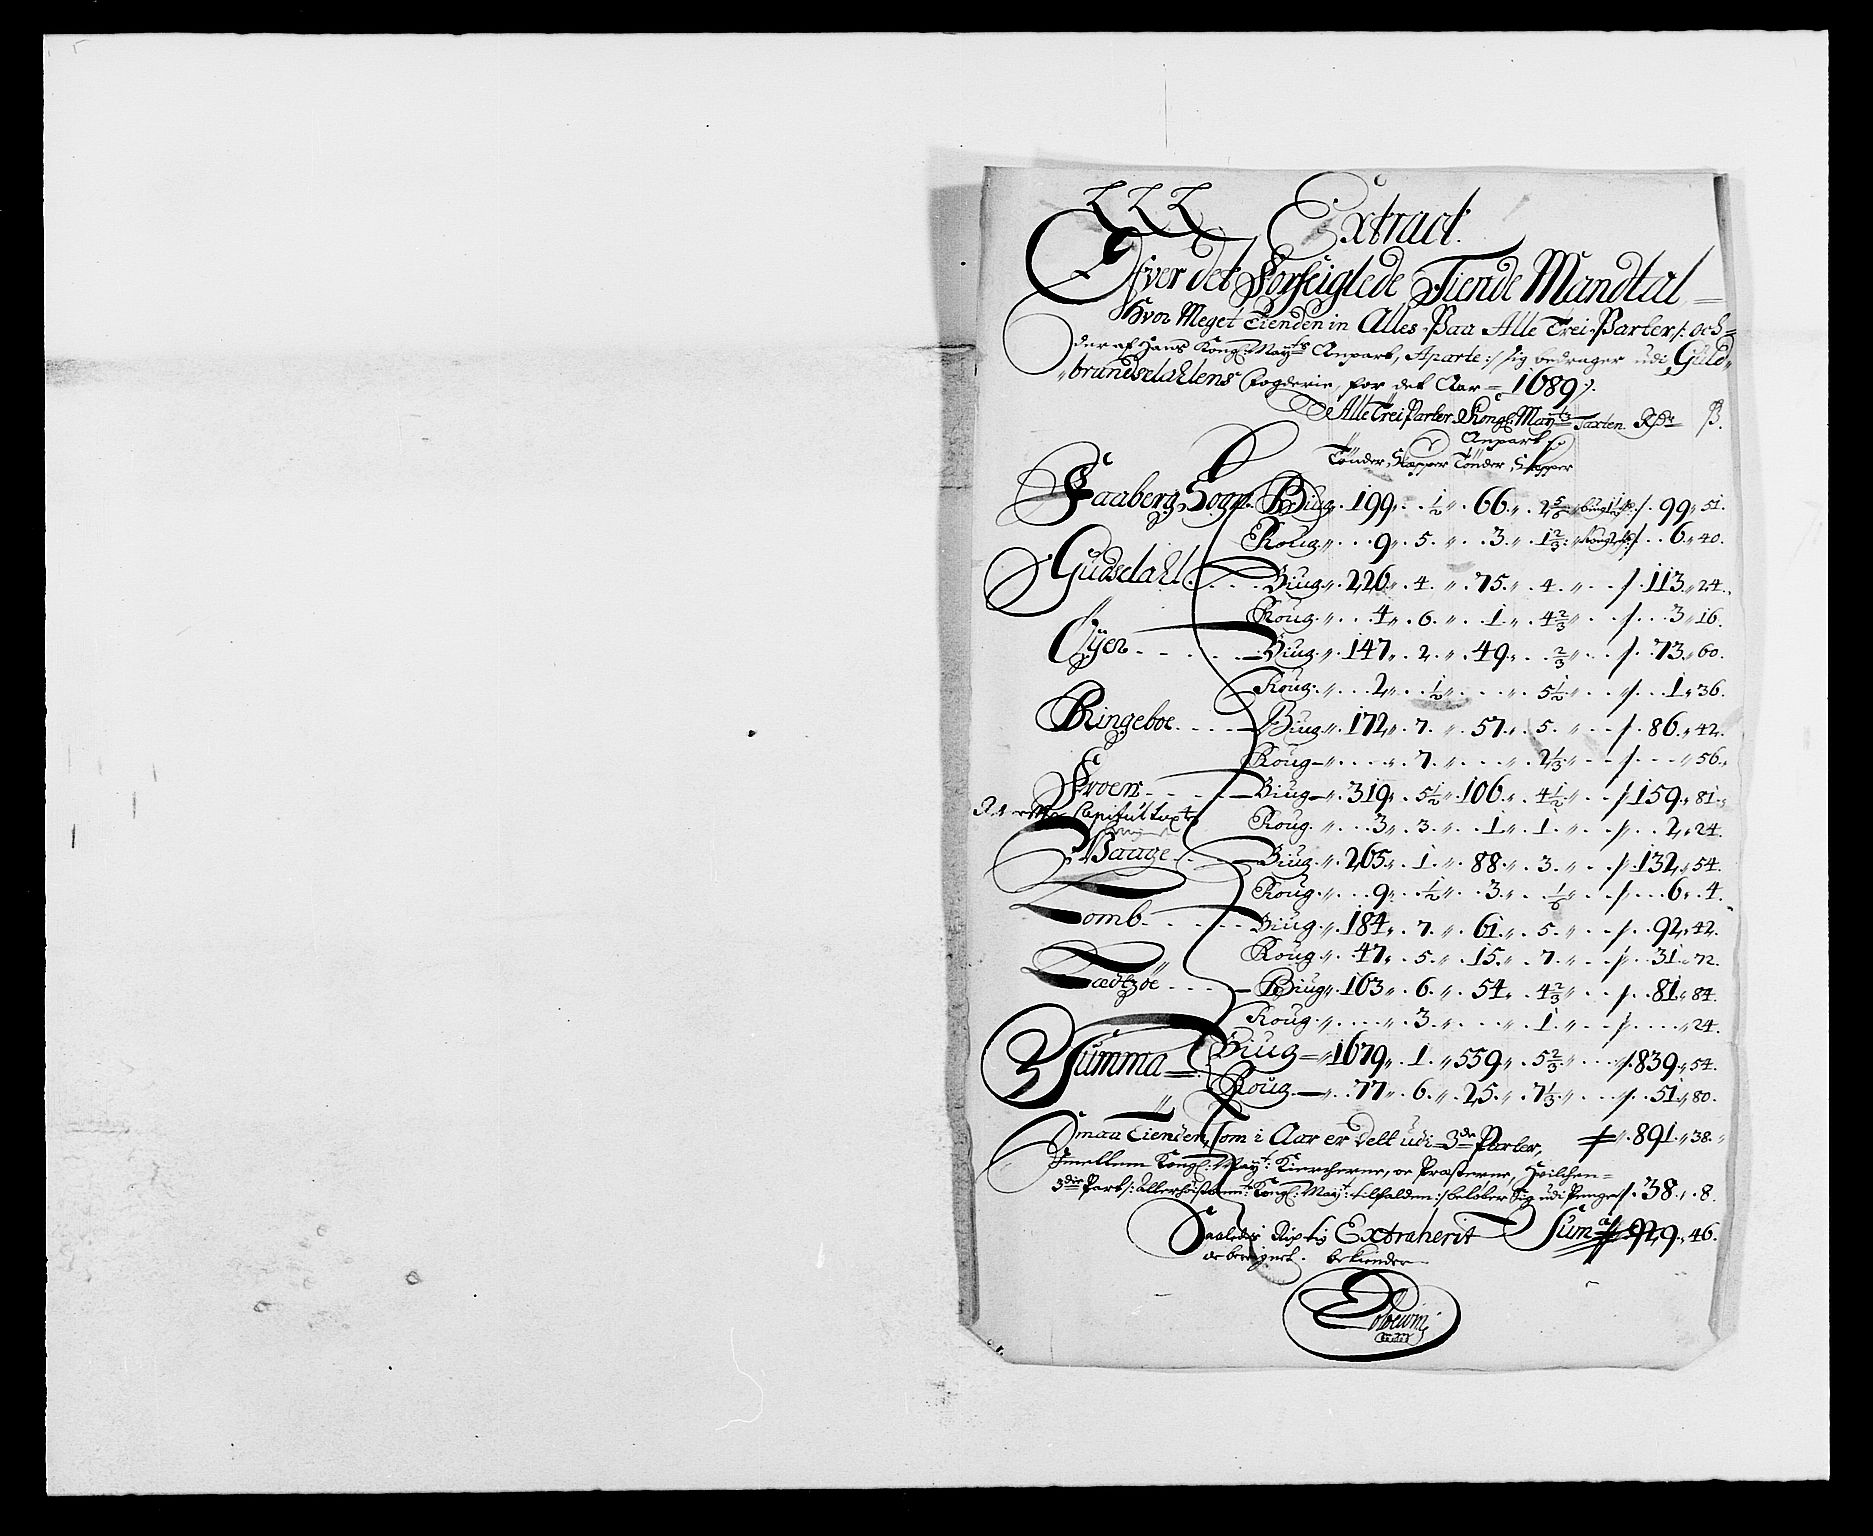 Extract
Ofver det Forseiglede Tiende Mandtal
Hvor Meget Tienden in Alles Paa Alle Trei Parter /: och
der af Hans Kongl: Mayts Anpart, Aparte :/ sig bedrager udi Guld-
brandsdahlens fogderie, for det Aar 1689 /.
Alle Trei Parter Kongl: Mayts Taxten Rdr ß.
Anpart
Tönder Skepper Tönder Skepper
Faaberg Sogn Biug 199 . ½ 66 . 2 5/6 99 . 51.
Roug 9 . 5 . 3 . 1 2/3 6 . 40.
Gudsdahl Biug 226 . 4 . 75 . 4 . 113 . 24.
Roug 4 . 6 . 1 . 4 2/3 . 3 . 16.
Öyer Biug 147 . 2 . 49 . 2/3 . 73 . 60.
Roug 2 . ½ . 5 ½ . 1 . 36.
Ringeboe Biug 172 . 7 . 57 . 5 . 86 . 42.
Roug . 7 . 2 1/3 . 56.
Froen Biug 319 . 5 ½ . 106 . 4 ½ . 159 . 81.
Capitul taxt
Roug 3 . 3 . 1 . 1 . 2 . 24.
Vaage Biug 265 . 1 . 88 . 3 . 132 . 54.
Roug 9 . ½ . 3 . 1/6 . 6 . 4.
Lomb Biug 184 . 7 . 61 . 5 . 92 . 42.
Roug 47 . 5 . 15 . 7 . 31 . 72.
Biug 163 . 6 . 54 . 4 2/3 . 81 . 84.
Roug . 3 . 1 . 24.
Summa Biug 1679 . 1 . 559 . 5 2/3 . 839 . 54.
Roug 77 . 6 . 25 . 7 1/3 . 51 . 80.
Smaa Tienden, som i Aar er delt udi 3de Parter, 891 . 38.
Imellem Kongl: Mayt: Kircherne, oc Præsterne, Hvilchen
3die Part /: Kongl: Mayt: tilfalden :/ beløber Sig udi Penge 38 . 8.
Saaledes Rigtig Extraherit Suma 929 . 46.
oc beregnet. bekiender